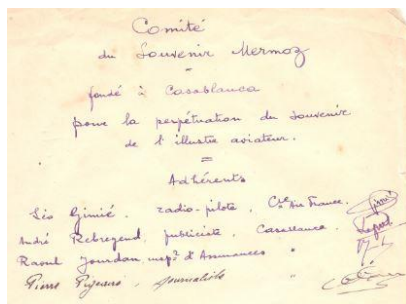 Comité
du Souvenir Mermoz
fondé à Casablanca
pour la perpétuation du Souvenir
de l'illustre aviateur.
=
Adhérents
Léo Gimié, radio-pilote, Cie Air France.
André Rebreyend, publiciste, Casablanca
Raoul Jourdan, insp? d'Assurances "
Pierre journaliste "